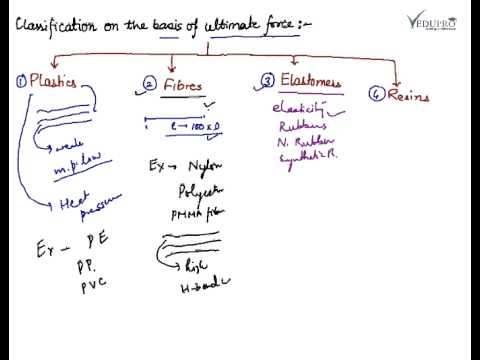 Classification on the basis of ultimate force :-
VEDUPRO
① Plastics
weak
m.p. low
Heat
pressure
Ex - PE
PP.
PVC
② Fibres
l → 100 x D
Ex → Nylon
Polyester
PMMA fibr
high
H-bond
③ Elastomers
elasticity
Rubbers
N. Rubber
Synthetic R.
④ Resins